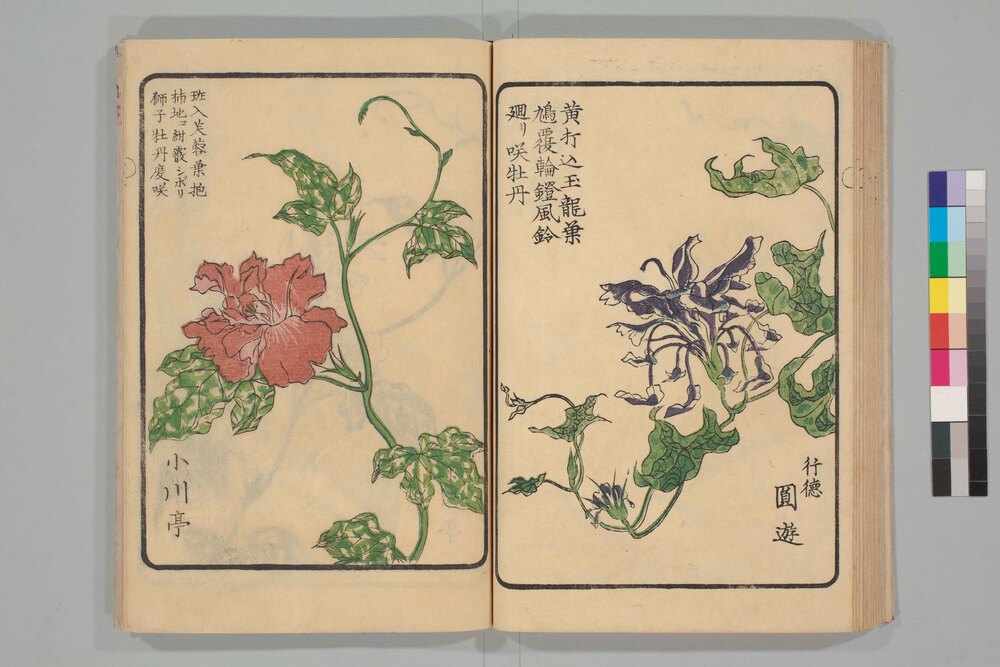 黄打込玉龍葉
鳩覆輪鐙風鈴
廻リ咲牡丹
行德
圓遊
斑入芙蓉葉抱
柿地ニ紺霰シボリ
獅子牡丹度咲
小川亭